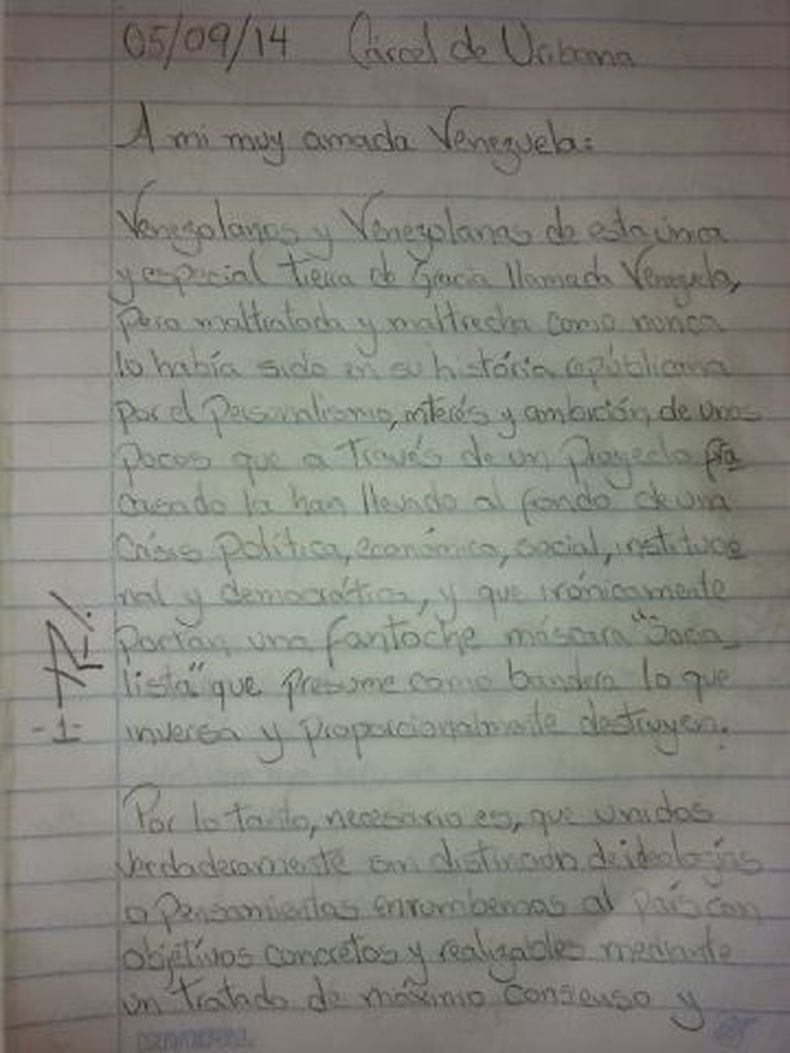 05/09/14 Cárcel de Uribana
A mi muy amada Venezuela:
Venezolanos y Venezolanas de esta única
y especial tierra de Gracia llamada Venezuela,
pero maltratada y maltrecha como nunca
lo había sido en su história repúblicana
por el personalismo, interés y ambición de unos
pocos que a través de un proyecto fra
casado la han llevado al fondo de una
crisis política, económica, social, institucio
nal y democrática, y que irónicamente
portan una fantoche máscara "Socia_
lista" que presume como bandera lo que
inversa y proporcionalmente destruyen.
-1-
Por lo tanto, necesario es, que unidos
verdaderamente sin distinción de ideologías
o pensamientos enrumbemos al país con
objetivos concretos y realizables mediante
un tratado de máximo consenso y